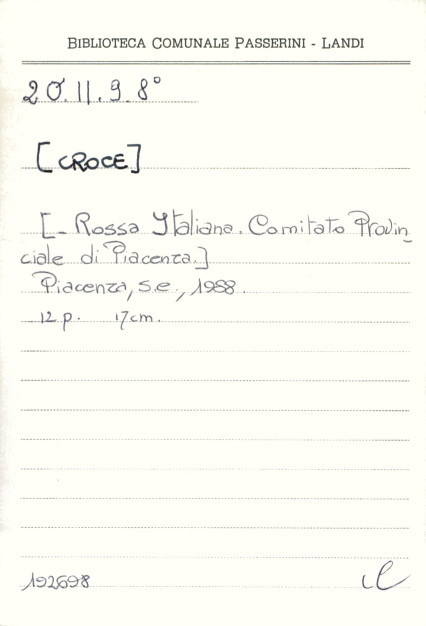 BIBLIOTECA COMUNALE PASSERINI - LANDI
20.II.9.8°
[CROCE]
[- Rossa Italiana. Comitato Provin
ciale di Piacenza.]
Piacenza, s.e., 1988.
12 p. 17cm.
192698